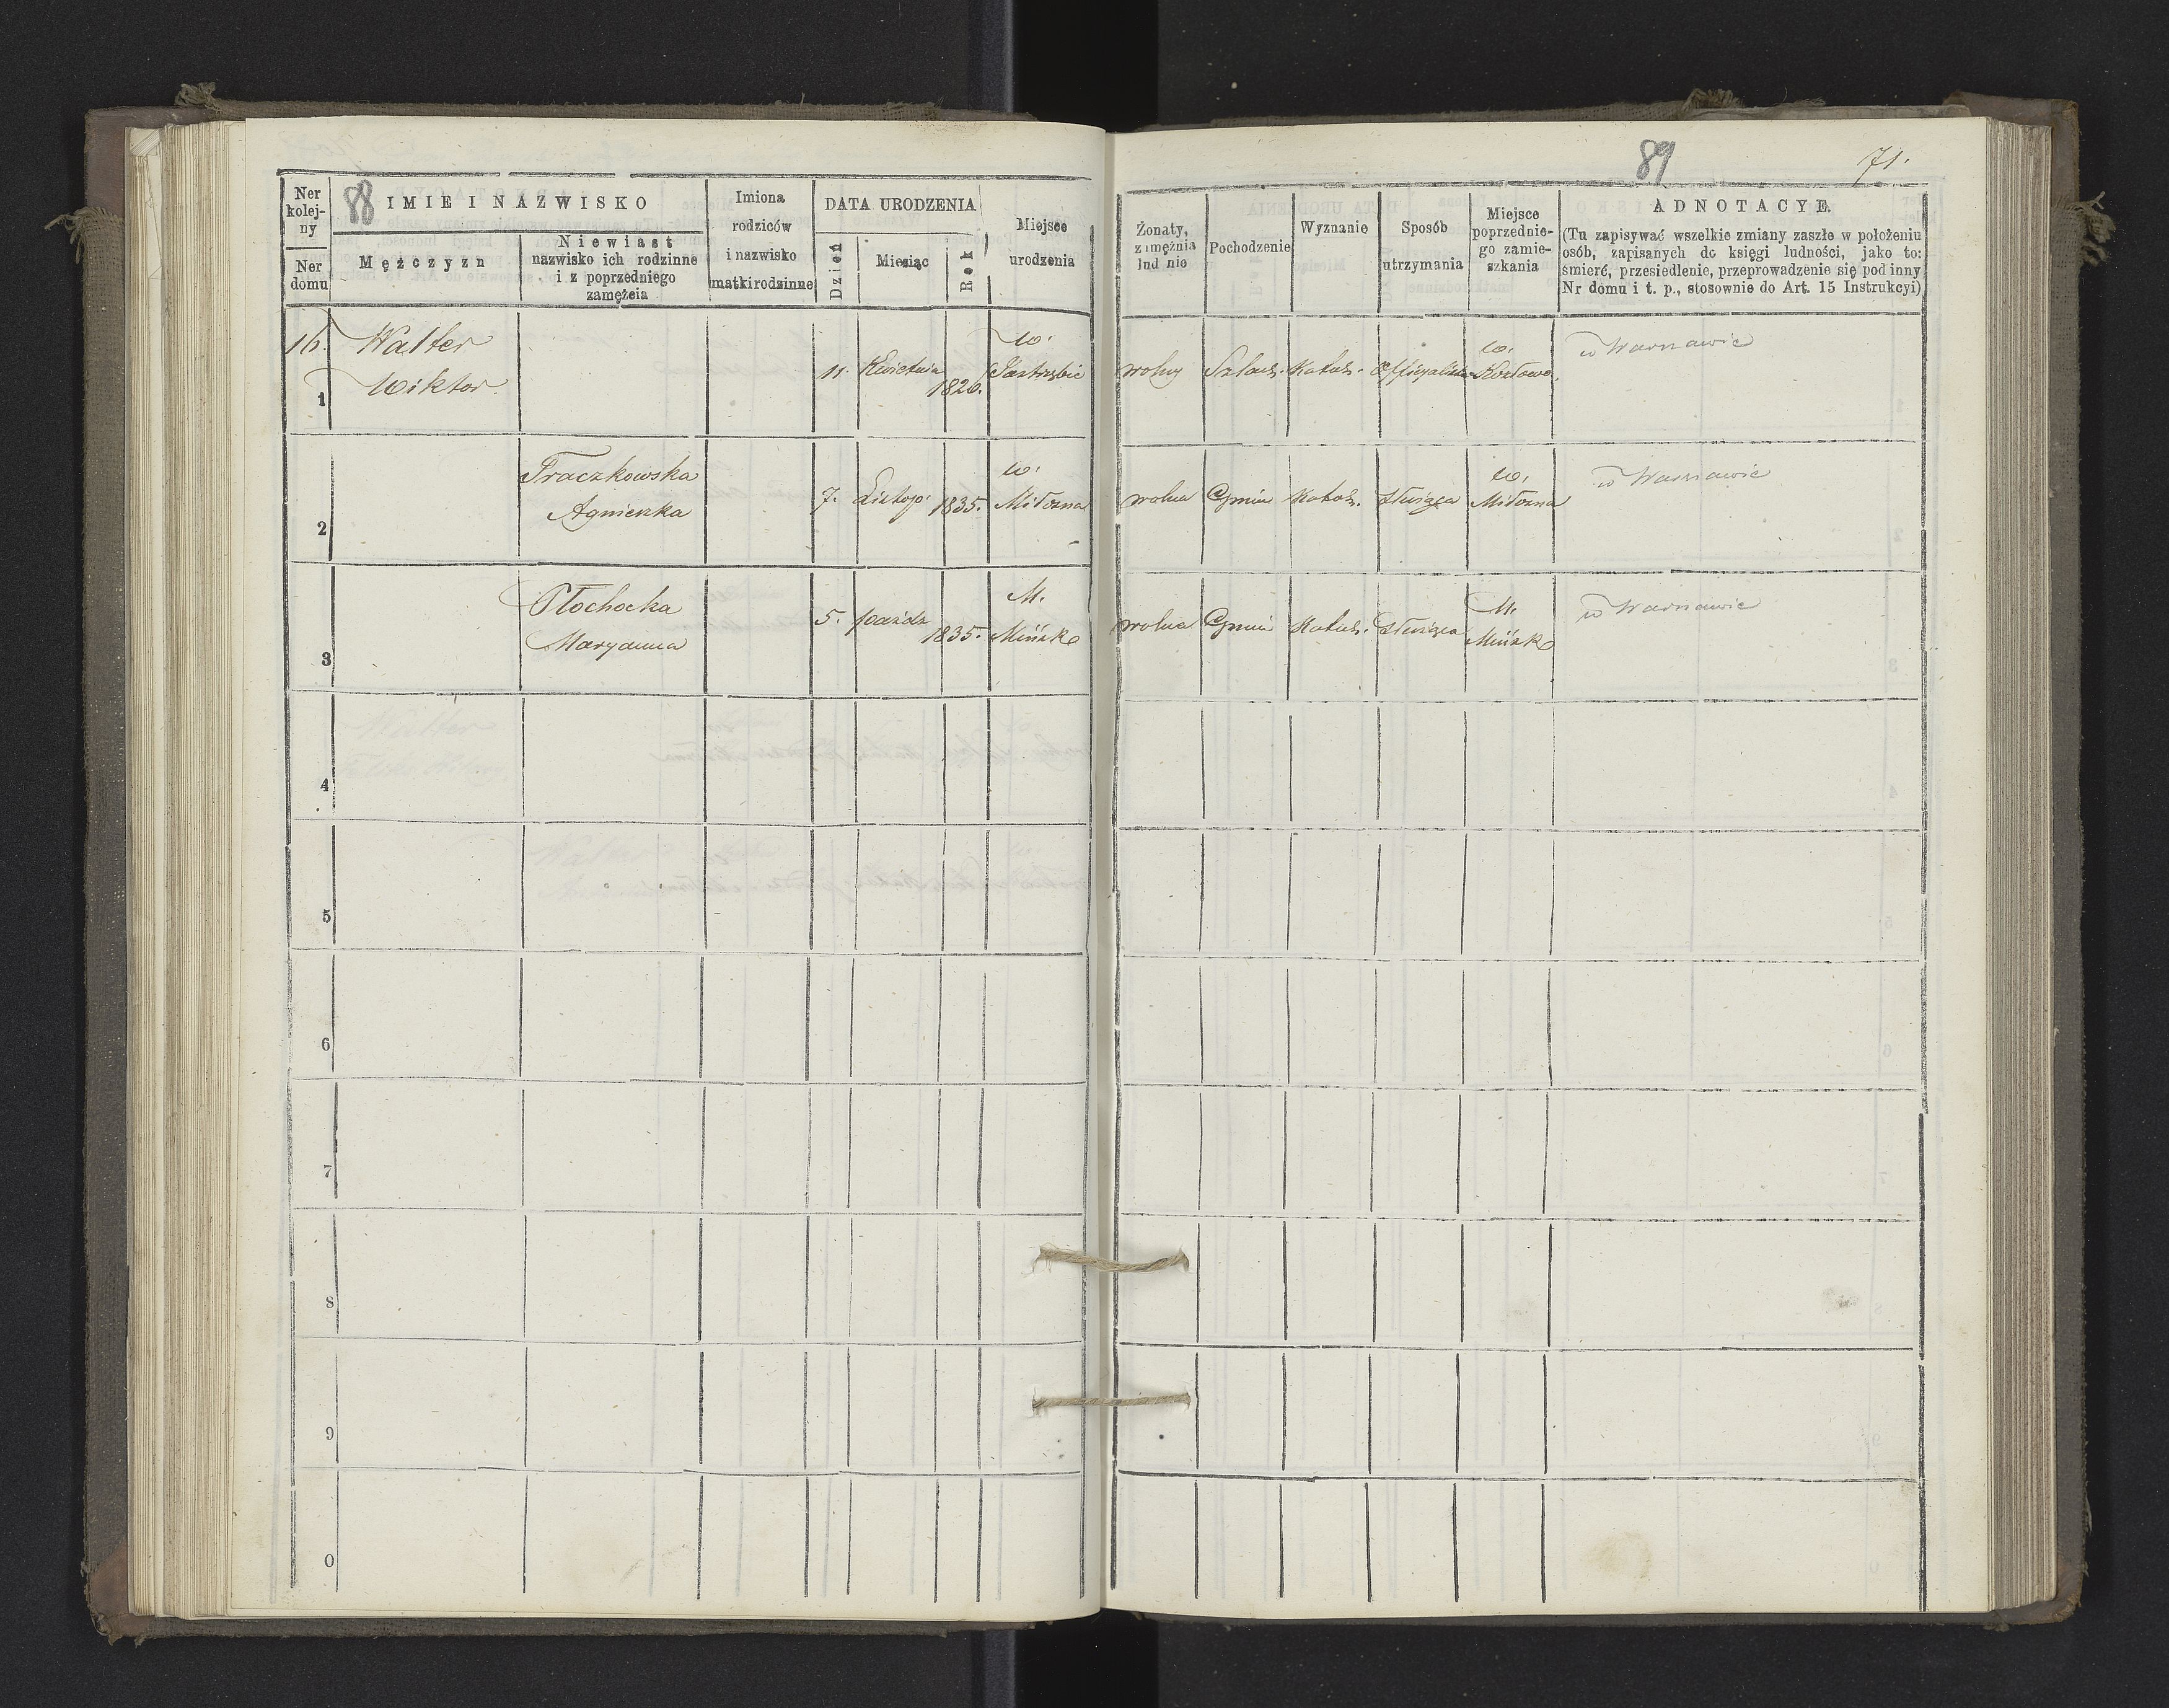 88
89
71.
Ner kolejny
Ner domu
IMIE I NAZWISKO
Mężczyzn
Niewiast
nazwisko ich rodzinne
i z poprzedniego
zamężcia
Imiona
rodziców
i nazwisko
matki rodzinne
DATA URODZENIA
Dzień
Miesiąc
Rok
Miejsce
urodzenia
Żonaty,
zamężnia
lud nie
Pochodzenie
Wyznanie
Sposób
utrzymania
Miejsce
poprzednie-
go zamie-
szkania
ADNOTACYE
(Tu zapisywać wszelkie zmiany zaszłe w położeniu
osób, zapisanych do księgi ludności, jako to:
śmierć, przesiedlenie, przeprowadzenie się pod inny
Nr domu i t. p., stosownie do Art. 15 Instrukcyi)
16.
1
Walter
Wiktor.
11. Kwietnia 1826.
w.
Jastrzębie
wolny Szlach. Katol. Officyalista
w.
Kozłowo.
w Warszawie
2
Traczkowska
Agnieszka
7. Listop. 1835.
w.
Miłosna
wolna Gmin Katol. Służąca
w.
Miłosna
w Warszawie
3
Płochocka
Maryanna
5. paźdz 1835.
M.
Mińsk
wolna Gmin Katol. Służąca
M.
Mińsk
w Warszawie
4
5
6
7
8
9
0